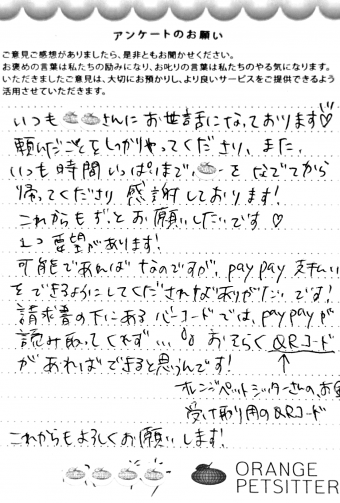 アンケートのお願い
ご意見ご感想がありましたら、是非ともお聞かせください。
お褒めの言葉は私たちの励みになり、お叱りの言葉は私たちのやる気になります。
いただきましたご意見は、大切にお預かりし、より良いサービスをご提供できるよう
活用させていただきます。
いつも さんにお世話になっております♡
願いごとをしっかりやってくださり、また、
いつも時間いっぱいまで、 をなでてから
帰ってくださり感謝しております!
これからもずっとお願いしたいです♡
1つ要望があります!
可能であればなのですが、paypay支払い
をできるようにしてくださればありがたいです!
請求書の下にあるバーコードでは、paypayが
読み取ってくれず… おそらくQRコード
があればできると思うんです!
オレンジペットシッターさんの、お金
受け取り用のQRコード
これからもよろしくお願いします!
ORANGE
PETSITTER